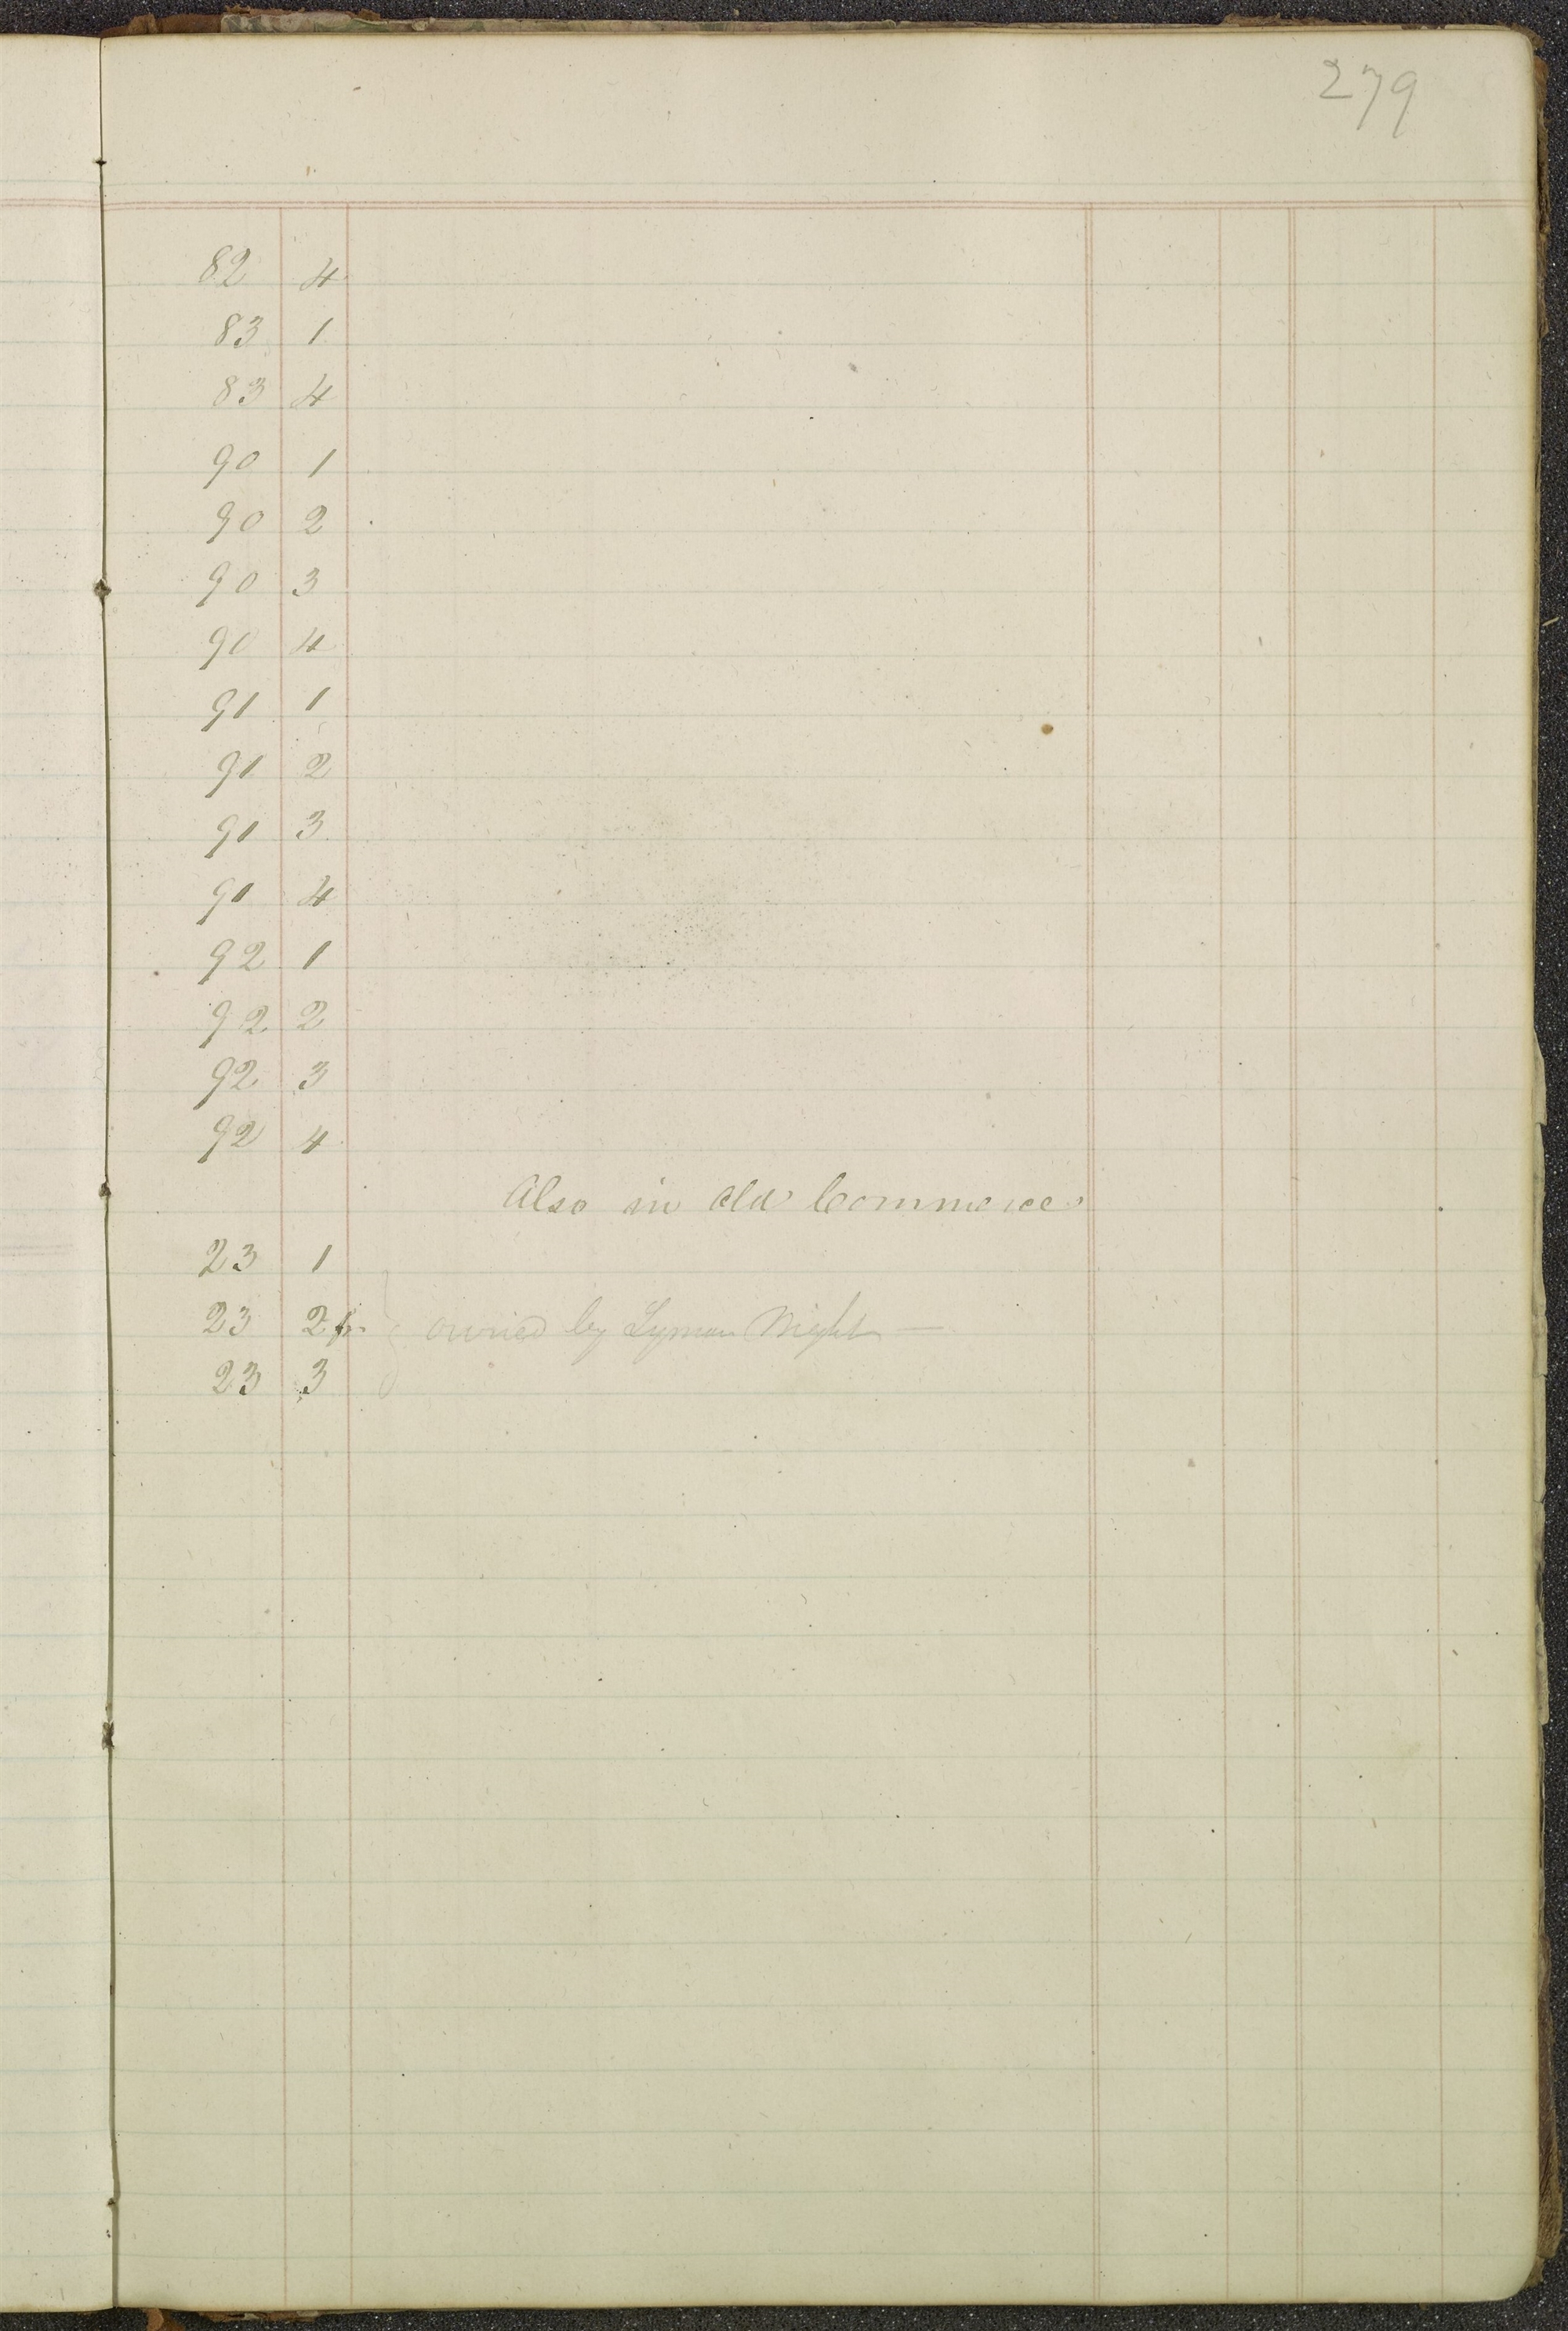 279
82 4
83 1
83 4
90 1
90 2
90 3
90 4
91 1
91 2
91 3
91 4
92 1
92 2
92 3
92 4
Also in Old Commerce
23 1
23 2 owned by Lyman Wight —
23 3